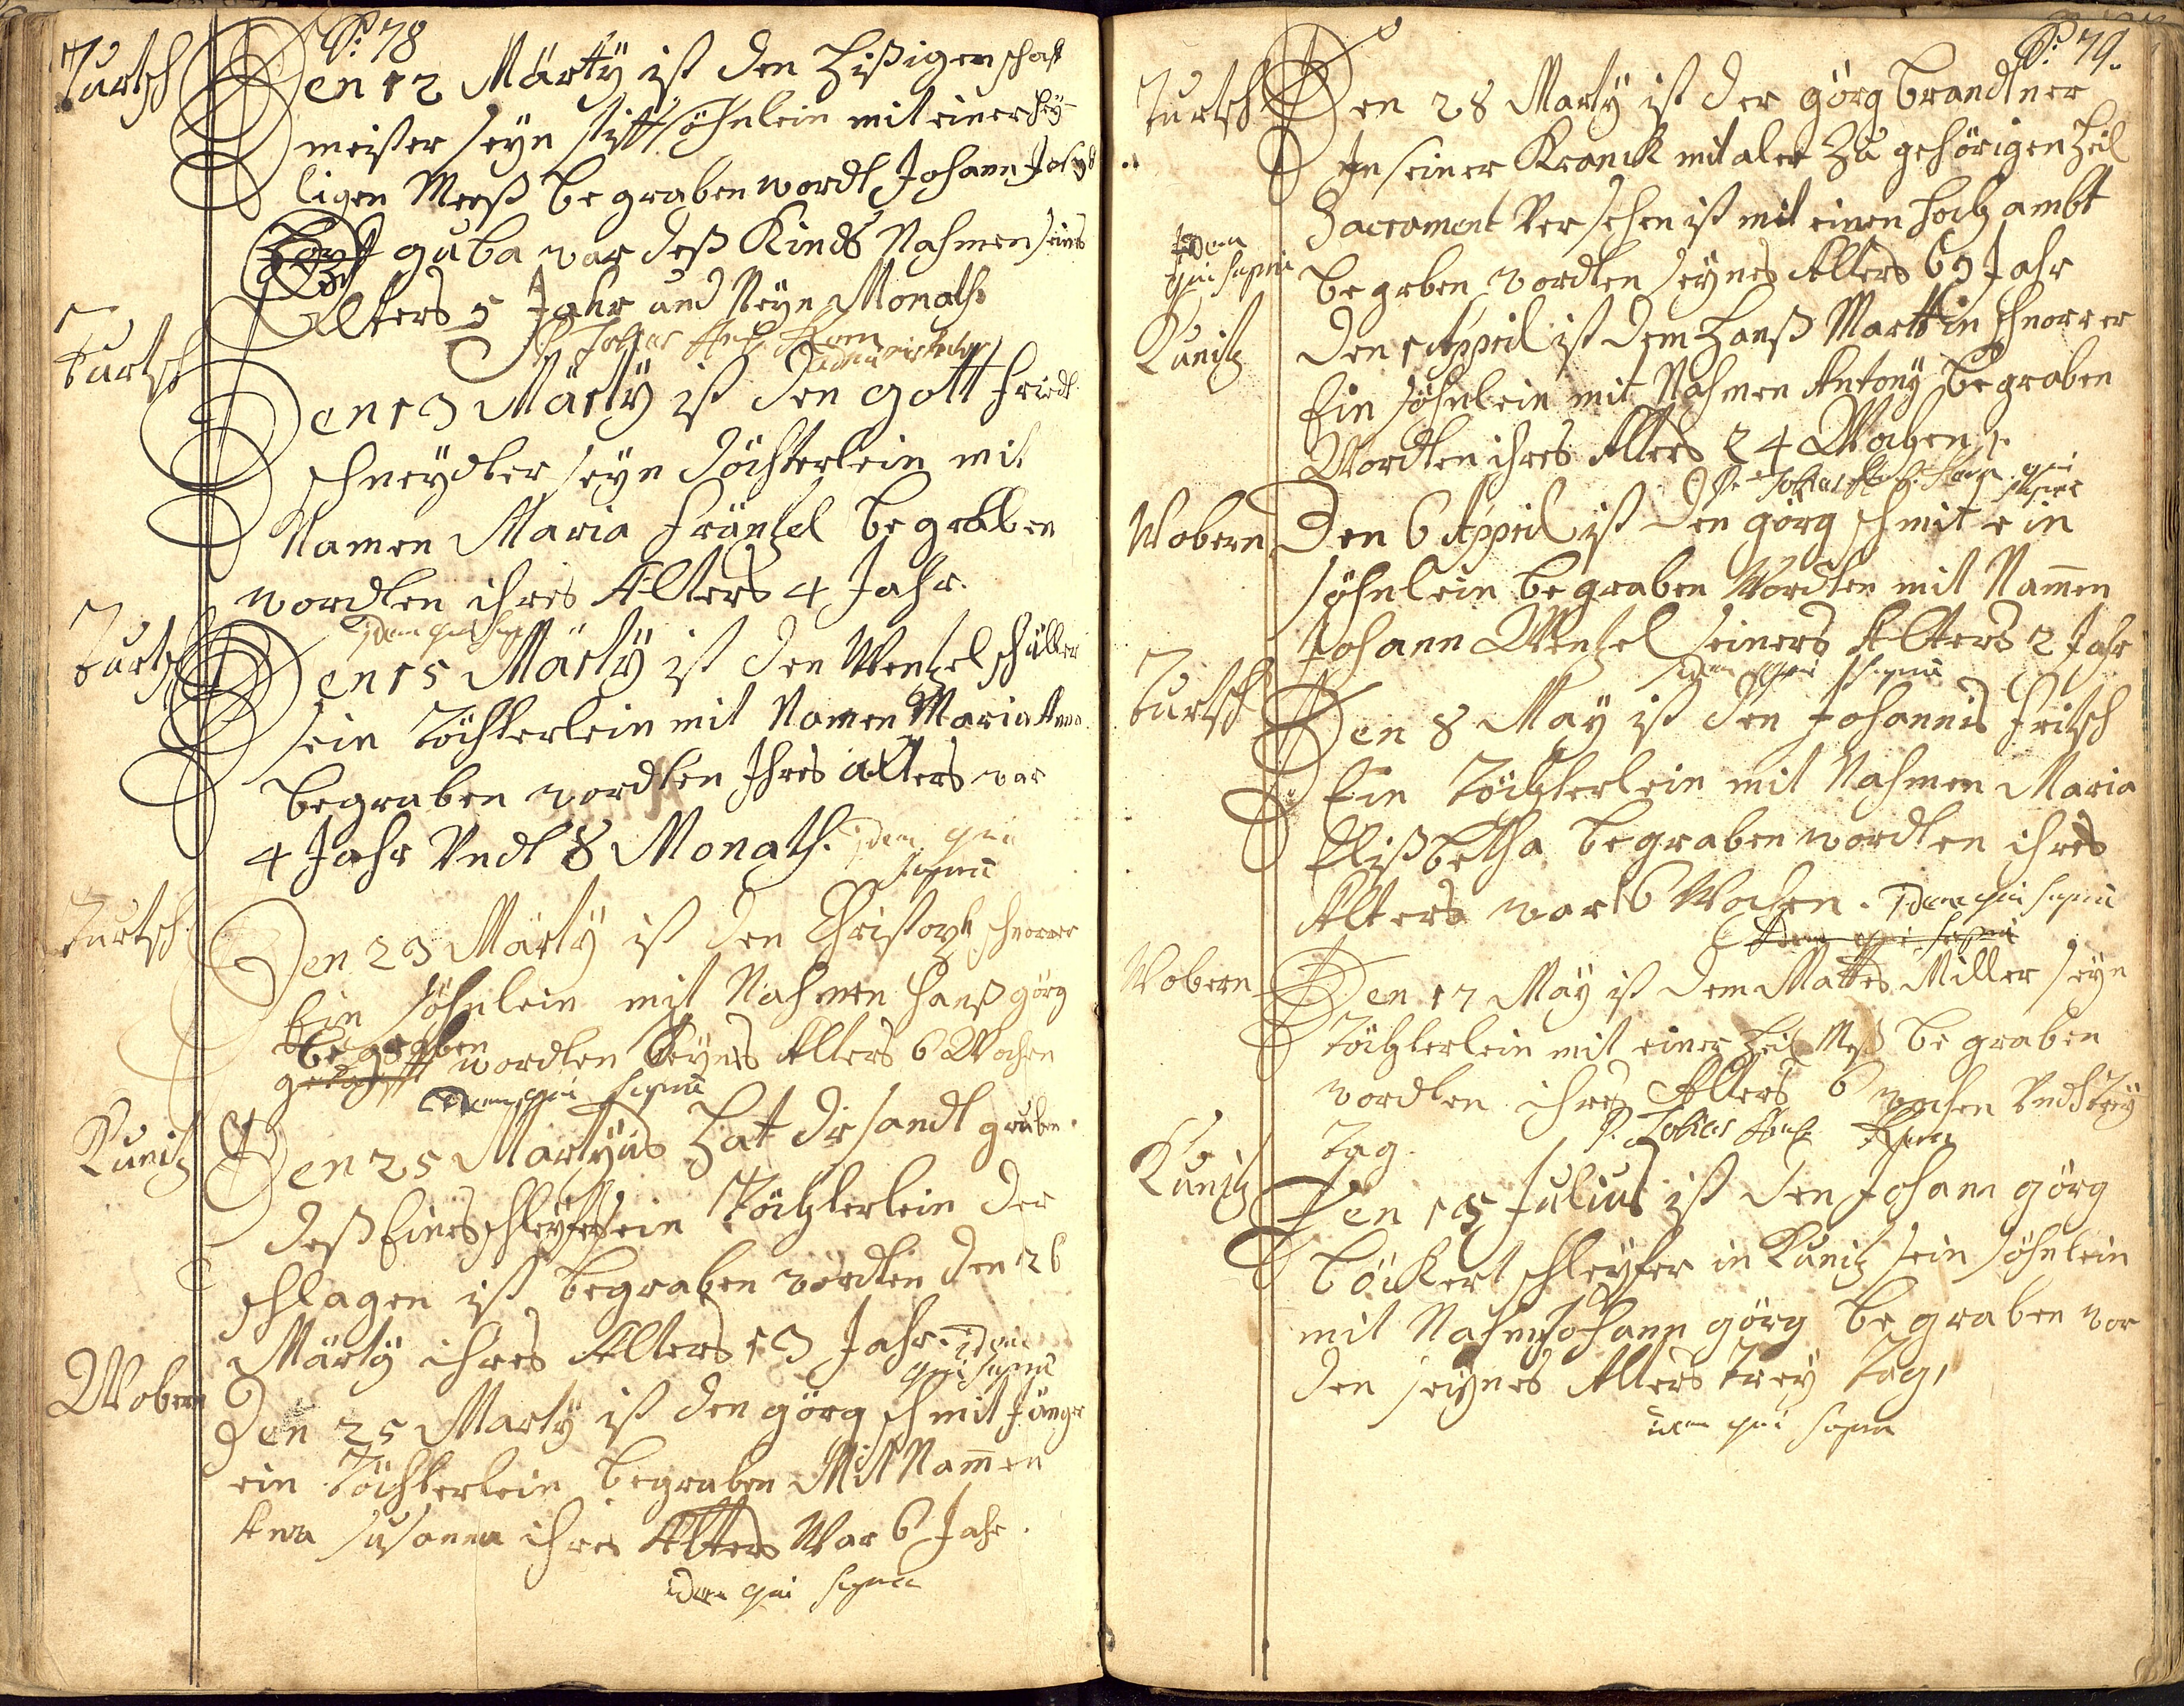 P: 78
Turtsch
Den 12 Märty ist den hißigen schaff
meister seyn stiff söhnlein mit einer hey
ligen Meeß begraben wordt Johann Joseph
guba war deß Kinds Nahmen seines
Alters 5 Jahr und Neyn Monath
P. Tobias Ant. Korn
administrator
Turtsch
Den 13 Märty ist den gottfriedt
schneydter seyn döchterlein mit
Namen Maria Fräntzel begraben
wordten ihres Alters 4 Jahr.
idem qui supra
Turtsch
Den 15 Märty ist den Wentzel schüller
sein Töchterlein mit Namen Maria Anna
begraben wordten Ihres alters war
4 Jahr Vndt 8 Monath. idem qui
supra
Turtsch
Den 23 Märty ist den Christoph schnorrer
Ein söhnlein mit Nahmen Hanß görg
begraben
getaufft wordten Seynes Alters 6 Wochen
idem qui supra
Kunitz
Den 25 Martyus hat dir sandt gruben
deß Einesschleyfers ein Töchterlein der
schlagen ist begraben wordten den 26
Märty ihres Alters 13 Jahr. idem
qui supra
Wobern
Den 25 Marty ist den görg schmit Jünger
ein Töchterlein begraben Mit Nammen
Anna susanna ihres Alters War 6 Jahr.
idem qui supra
P: 79.
Turtsch
Den 28 Marty ist der görg brandtner
In seiner Kranck mit aler zu gehörigen heil
Sacrament Versehen ist mit einen hoch ambt
begrben wordten seynes Alters 69 Jahr
idem
qui supra
Kunitz
den 1 Appril ist dem hanß Marttin schnorrer
Ein söhnlein mit Nahmen Antony begraben
Wordten ihres Alters 24 Wochen
P. Tobias Ant. Korn qui
supra
Wobern
Den 6 Appril ist den görg schmit ein
söhnlein begraben Wordten mit Nammen
Johann Wentzel seiners Alters 2 Jahr
idem qui supra
Turtsch
Den 8 May ist den Johannis Fritsch
Ein Töchterlein mit Nahmen Maria
Elißbetha begraben wordten ihres
Alters war 6 Wochen. idem qui supra
idem qui supra
Wobern
Den 17 May ist dem Mattes Miller seyn
Töchterlein mit einer heil Meß begraben
wordten ihres Alters 6 wochen Vndt trey
Tag.
P. Tobias Ant. Korn
Kunitz
Den 15 Julius ist den Johann görg
böckert schleyfer in Kunitz sein söhnlein
mit Nahmen Johann görg begraben wor
den seynes Alters trey Tag,
idem qui supra